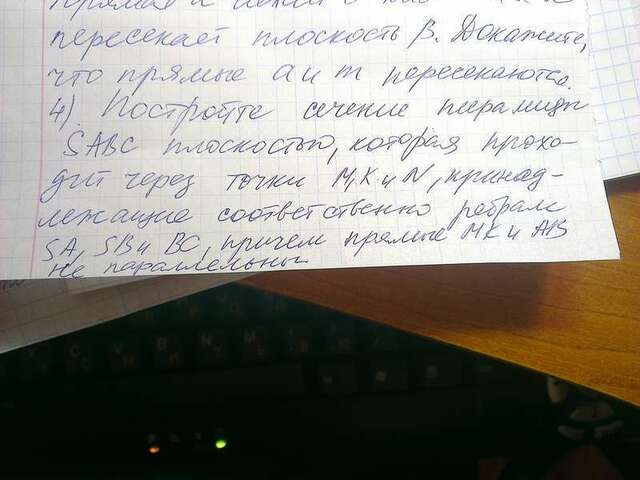 пересекает плоскость β. Докажите,
что прямые a и m пересекаются.
4). Постройте сечение пирамиды
SABC плоскостью, которая прохо-
дит через точки M, K и N, принад-
лежащие соответственно рёбрам
SA, SB и BC, причем прямые MK и AB
не параллельны